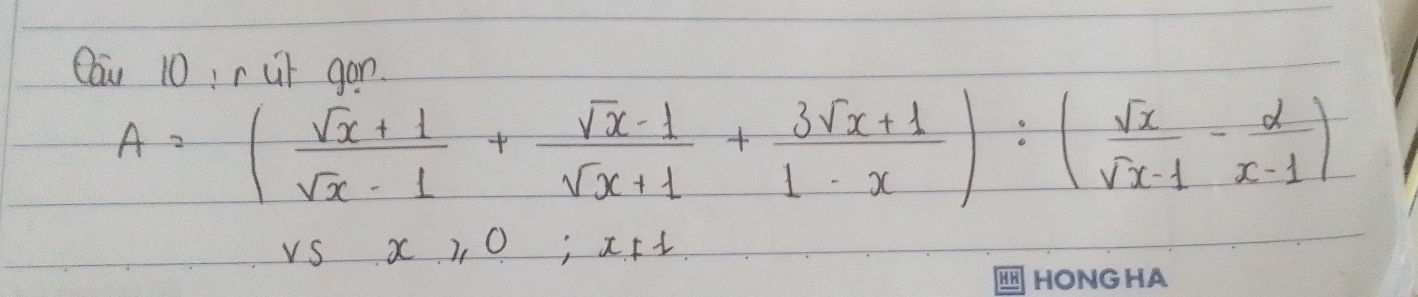 Câu 10 : rút gọn.
A = ( (√x + 1)/(√x - 1) + (√x - 1)/(√x + 1) + (3√x + 1)/(1 - x) ) : ( √x/(√x-1) - 2/(x-1) )
vs x ⩾ 0 ; x ≠ 1
HH HONG HA